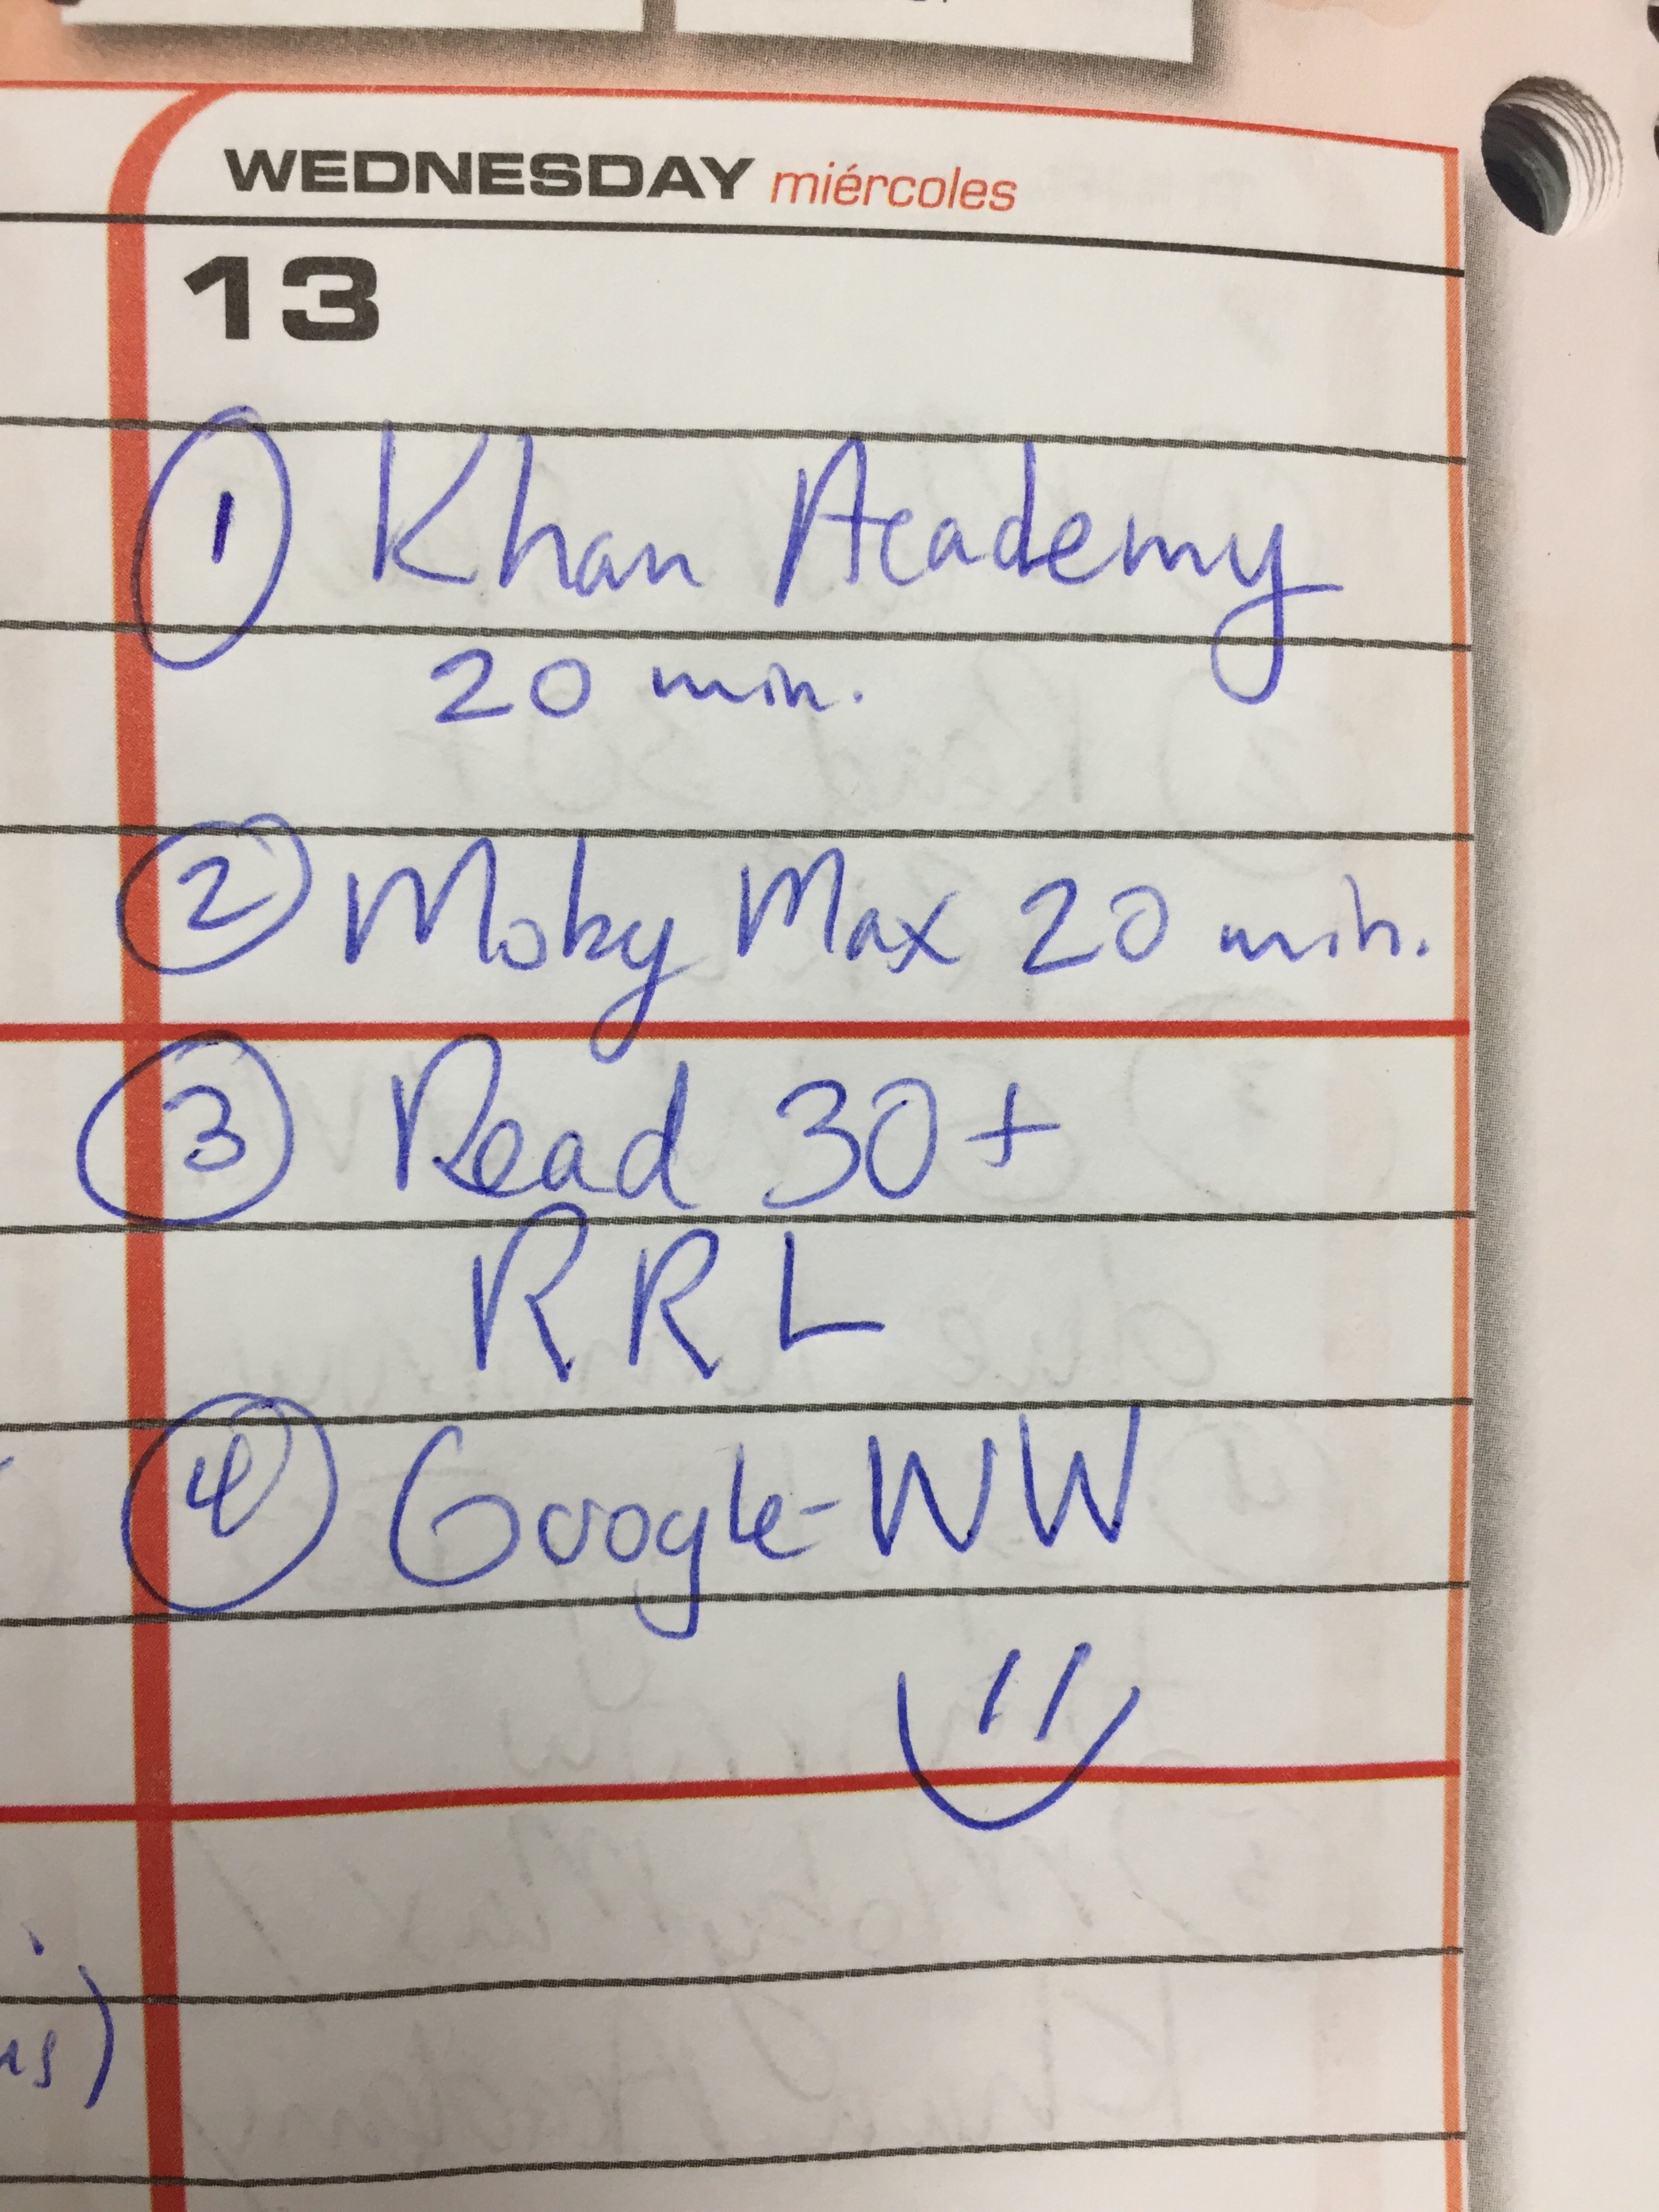 WEDNESDAY miércoles
13
① Khan Academy
20 min.
② Moby Max 20 min.
③ Read 30+
RRL
④ Google-WW